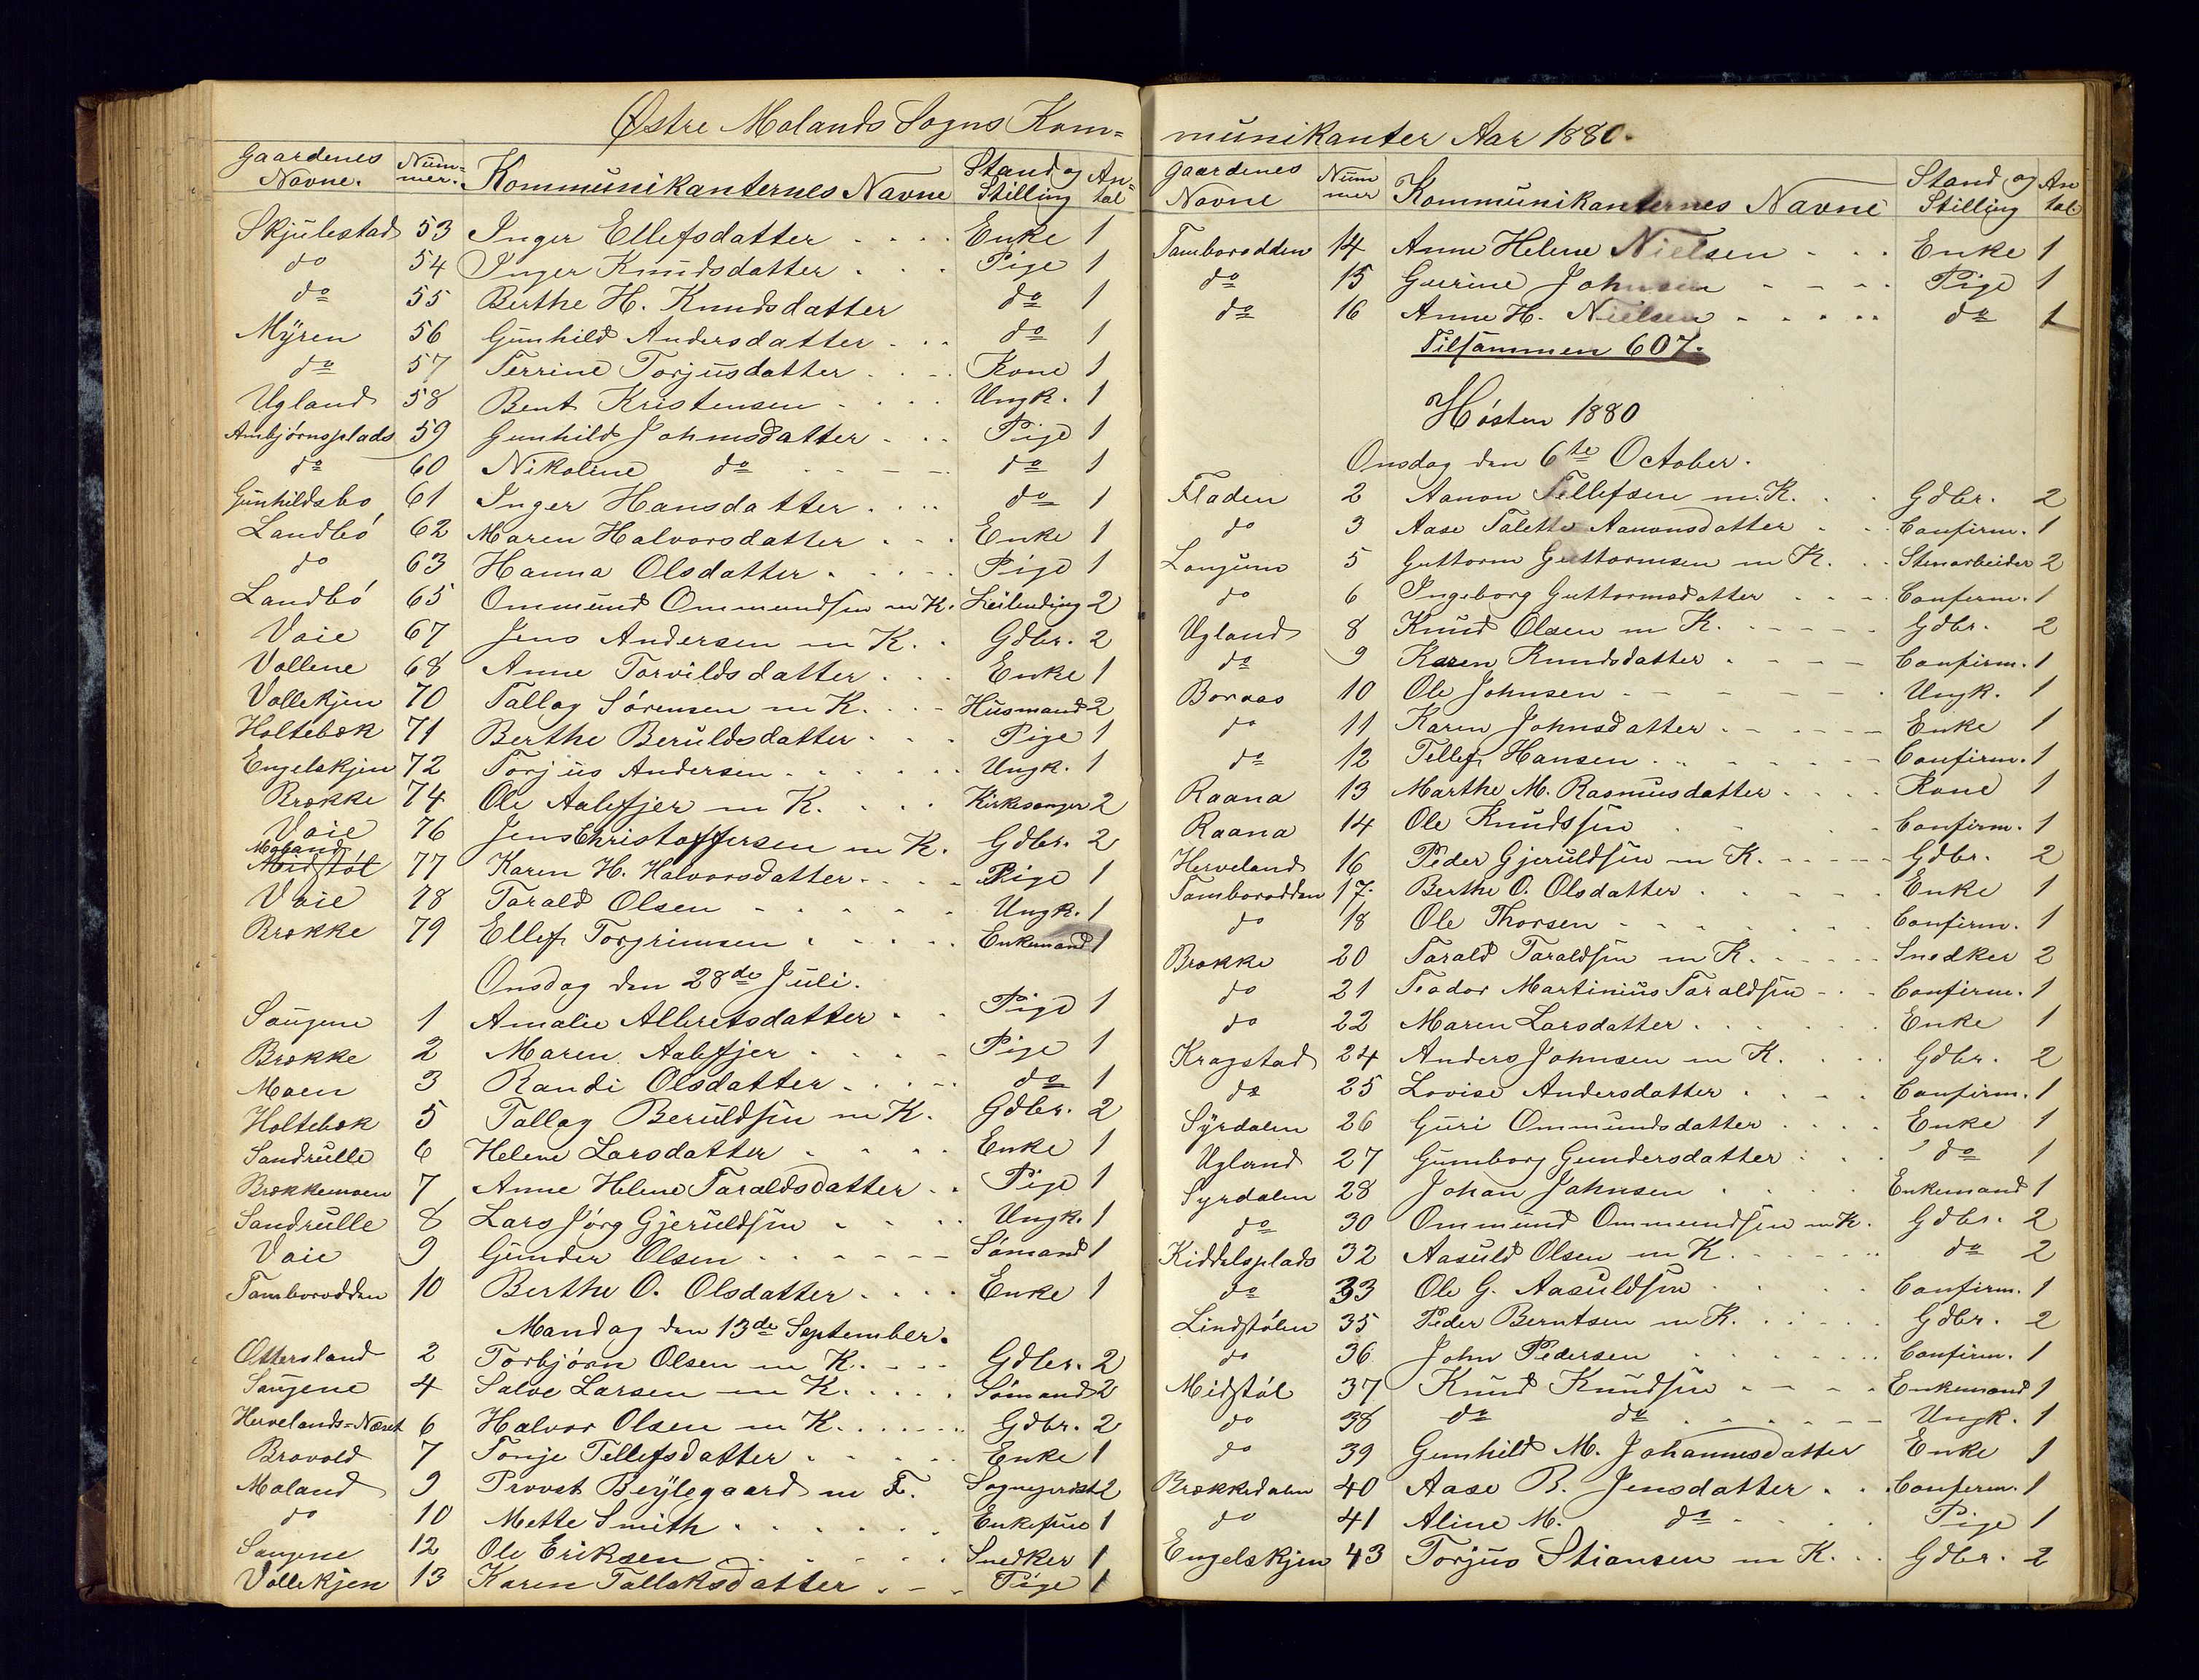 Østre Molands Sogns Kom=
Gaardenes Navne. Num=mer. Kommunikanternes Navne Stand og Stilling An=tal
Skjulestad 53 Inger Ellefsdatter Enke 1
do 54 Inger Knudsdatter Pige 1
do 55 Berthe H. Knudsdatter do 1
Myren 56 Gunhild Andersdatter do 1
do 57 Terrine Torjusdatter Kone 1
Ugland 58 Bent Kristensen Ungk. 1
Ambjørnsplads 59 Gunhild Johnsdatter Pige 1
do 60 Nikoline do do 1
Gunhildsbo 61 Inger Hansdatter do 1
Landbó 62 Maren Halvorsdatter Enke 1
do 63 Hanna Olsdatter Pige 1
Landbó 65 Ommund Ommundsen m K. Leilending 2
Vaie 67 Jens Andersen m K. Gdbr. 2
Vollene 68 Anne Torvildsdatter Enke 1
Vollekjen 70 Tallag Sörensen m K. Husmand 2
Holtebæk 71 Berthe Beruldsdatter Pige 1
Engelskjen 72 Torjus Andersen Ungk. 1
Brække 74 Ole Aalefjer m K. Kirkesanger 2
Vaie 76 Jens Christoffersen m K. Gdbr. 2
Moland
Midtstöl 77 Karen H. Halvorsdatter Pige 1
Vaie 78 Tarald Olsen Ungk. 1
Brække 79 Ellef Torgrimsen Enkemand 1
Onsdag den 28de Juli.
Saugene 1 Amalie Albretsdatter Pige 1
Brække 2 Maren Aalefjer Pige 1
Moen 3 Randi Olsdatter do 1
Holtebæk 5 Tallag Beruldsen m K. Gdbr. 2
Sandrulle 6 Helene Larsdatter Enke 1
Brækkemoen 7 Anne Helene Taraldsdatter Pige 1
Sandrulle 8 Lars Jörg Gjeruldsen Ungk. 1
Vaie 9 Gunder Olsen Sömand 1
Tamborodden 10 Berthe O. Olsdatter Enke 1
Mandag den 13de September.
Ottersland 2 Torbjörn Olsen m K. Gdbr. 2
Saugene 4 Salve Larsen m K. Sömand 2
Hervelands=Næset 6 Halvor Olsen m K. Gdbr. 2
Bravold 7 Tonje Tellefsdatter Enke 1
Moland 9 Provst Beylegaard m F. Sogneprest 2
do 10 Mette Smith Enkefrue 1
Saugene 12 Ole Eriksen Snedker 1
Vollekjen 13 Karen Tallaksdatter Pige 1
munikanter Aar 1880.
Gaardenes Navne Nummer Kommunikanternes Navne Stand og Stilling Antal
Tamborodden 14 Anne Helene Nielsen Enke 1
do 15 Guerine Johnsen Pige 1
do 16 Anne H. Nielsen do 1
Tilsammen 607.
Hösten 1880
Onsdag den 6te October.
Fladen 2 Aanon Tellefsen m. K. Gdbr. 2
do 3 Aase Talette Aanonsdatter Confirm. 1
Langum 5 Guttorm Guttormsen m K. Stenarbeider 2
do 6 Ingeborg Guttormsdatter Confirm. 1
Ugland 8 Knud Olsen m K. Gdbr. 2
do 9 Karen Knudsdatter Confirm. 1
Boraas 10 Ole Johnsen Ungk. 1
do 11 Karen Johnsdatter Enke 1
do 12 Tellef Hansen Confirm. 1
Raana 13 Marthe M. Rasmusdatter Kone 1
Raana 14 Ole Knudssen Confirm. 1
Herveland 16 Peder Gjeruldsen m K. Gdbr. 2
Tamborodden 17. Berthe O. Olsdatter Enke 1
do 18 Ole Thorsen Confirm. 1
Brække 20 Tarald Taraldsen m K. Snedker 2
do 21 Teodor Martinius Taraldsen Confirm. 1
do 22 Maren Larsdatter Enke 1
Kragstad 24 Anders Johnsen m K. Gdbr. 2
do 25 Lovise Andersdatter Confirm. 1
Syrdalen 26 Guri Ommundsdatter Enke 1
Ugland 27 Gumborg Gundersdatter do 1
Syrdalen 28 Johan Johnsen Enkemand 1
do 30 Ommund Ommundsen m K. Gdbr. 2
Kiddelsplads 32 Aasuld Olsen m K do 2
do 33 Ole G. Aasuldsen Confirm. 1
Lindstölen 35 Peder Berntsen m K. Gdbr. 2
do 36 John Pedersen Confirm. 1
Midtstöl 37 Knud Knudsen Enkemand 1
do 38 do do Ungk. 1
do 39 Gunhild M. Johannesdatter Enke 1
Brækkedalen 40 Aase B. Jensdatter Confirm. 1
do 41 Aline M. do Pige 1
Engelskjen 43 Torjus Stiansen m K. Gdbr. 2